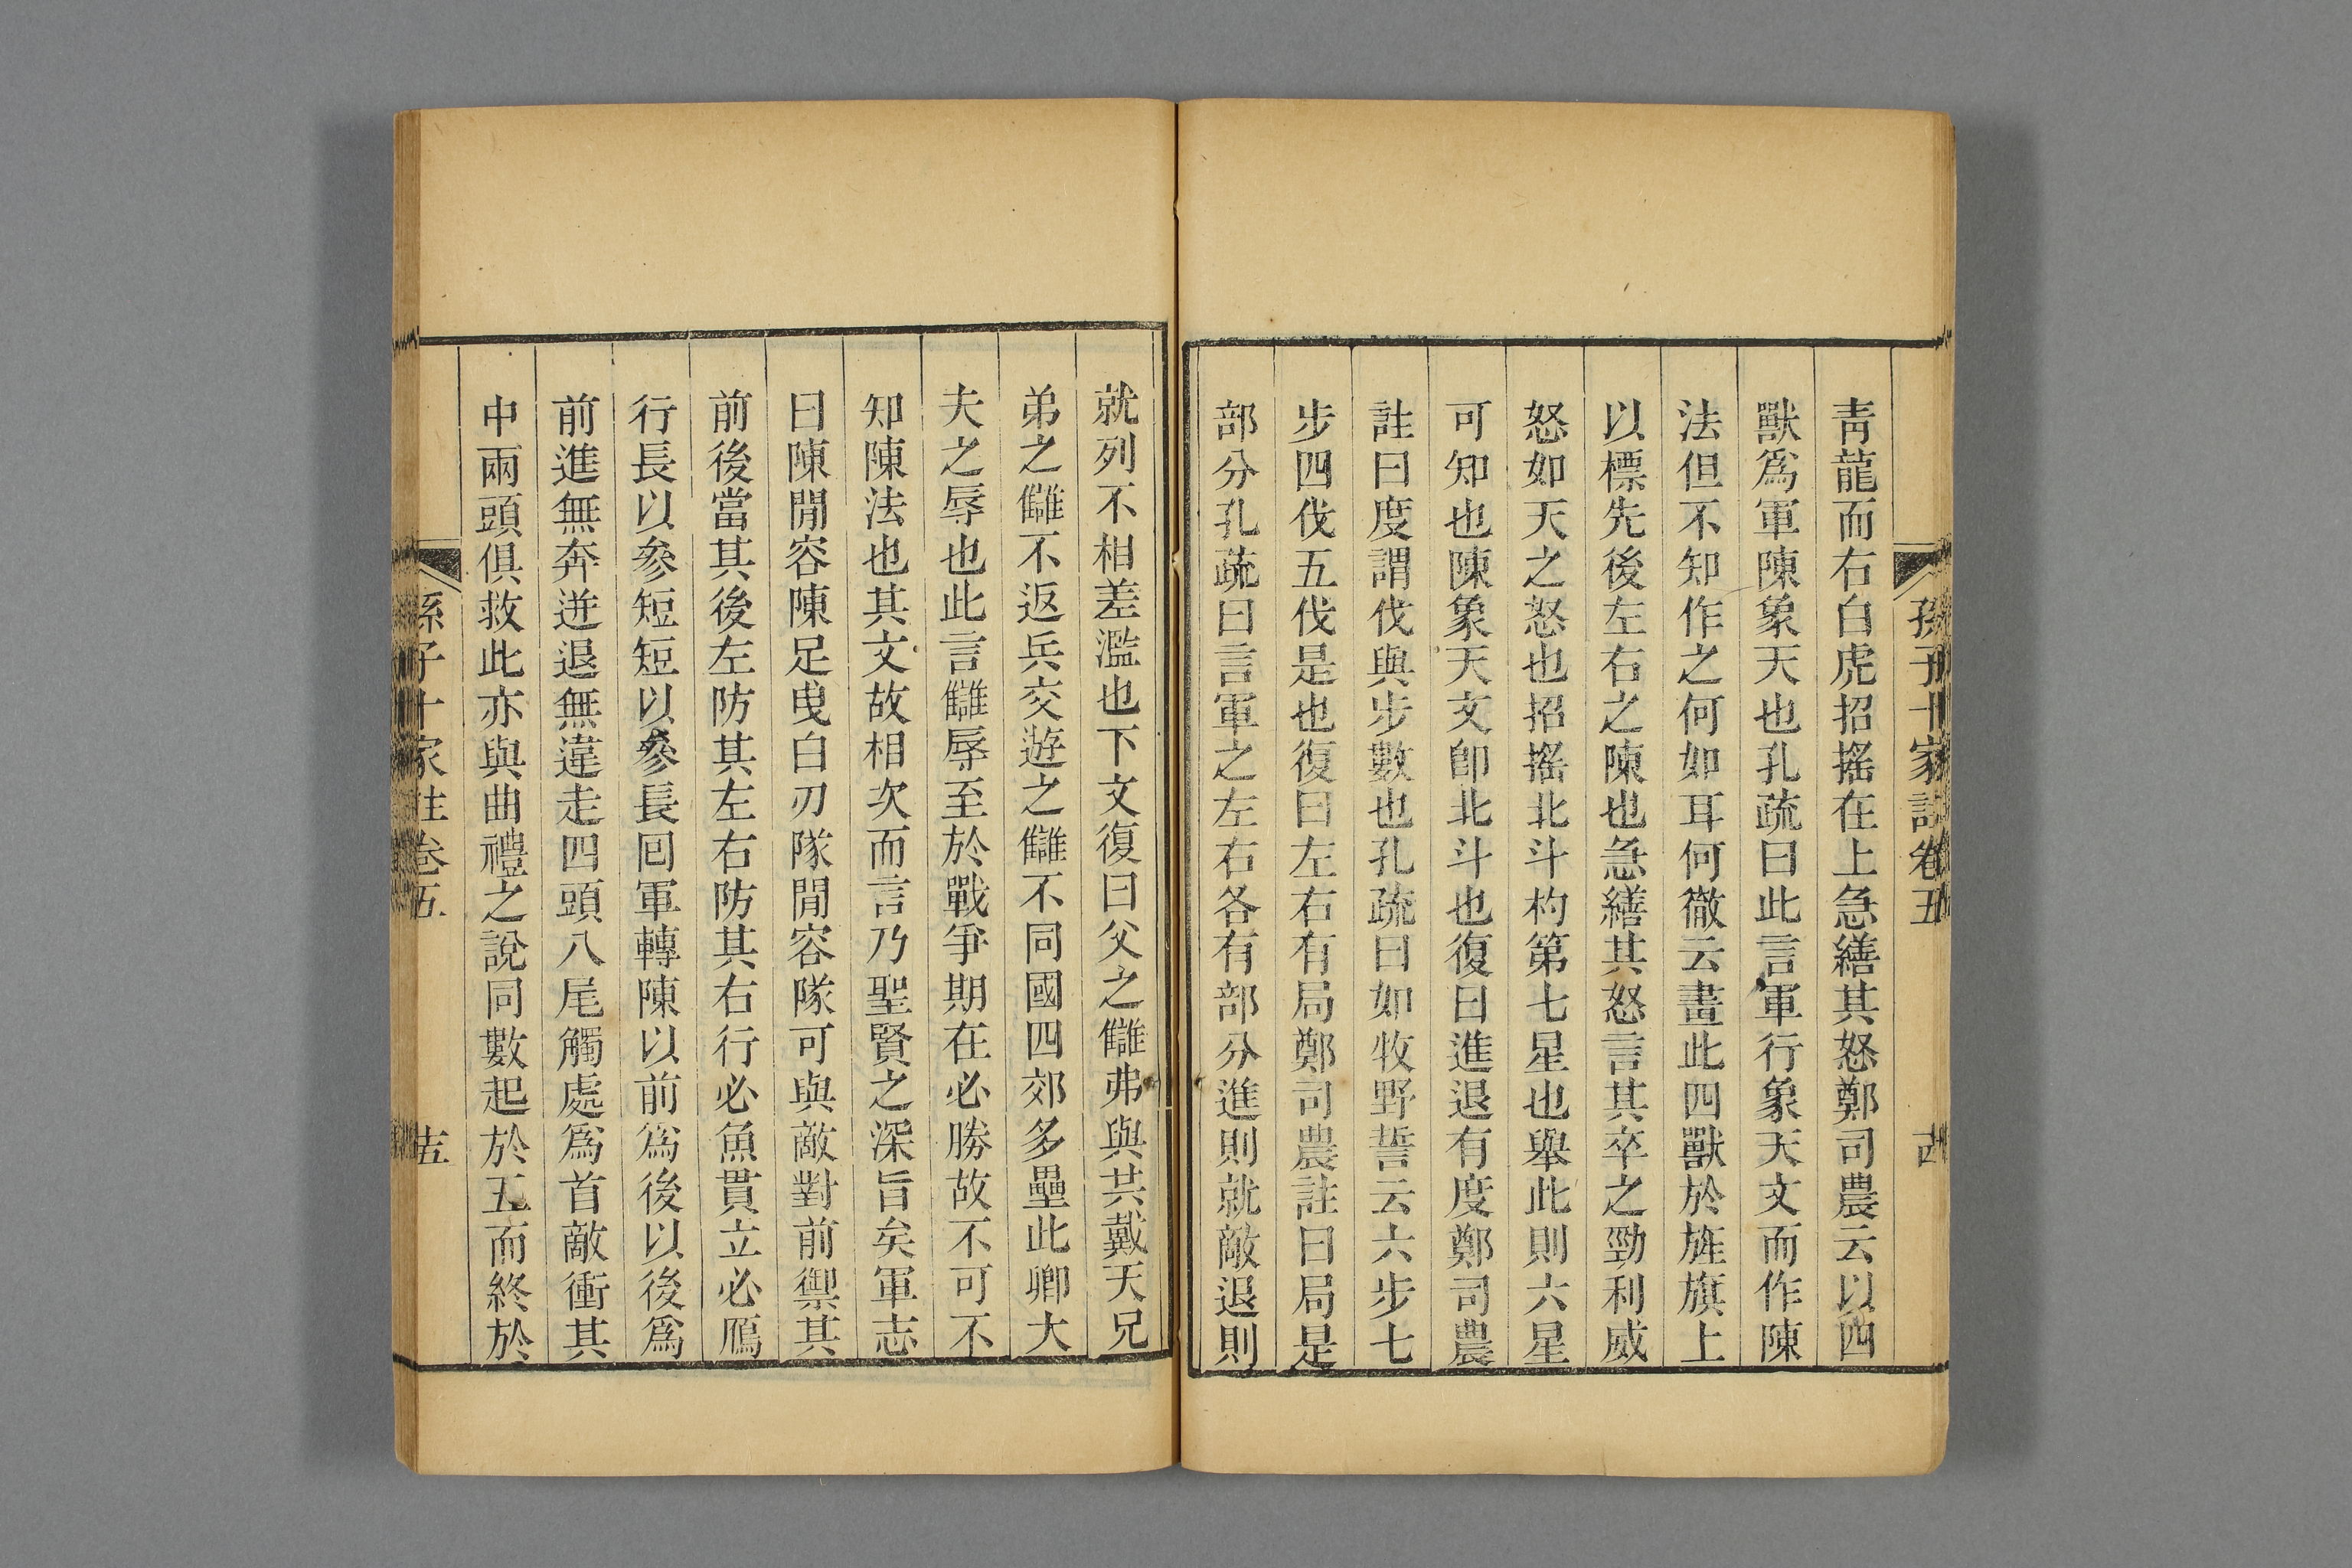 孫子十家註卷五
青龍而右白虎招搖在上急繕其怒鄭司農云以四
獸爲軍陳象天也孔疏曰此言軍行象天文而作陳
法但不知作之何如耳何徹云畫此四獸於旌旗上
以標先後左右之陳也急繕其怒言其卒之勁利威
怒如天之怒也招搖北斗杓第七星也舉此則六星
可知也陳象天文卽北斗也復曰進退有度鄭司農
註曰度謂伐與步數也孔疏曰如牧野誓云六步七
步四伐五伐是也復曰左右有局鄭司農註曰局是
部分孔疏曰言軍之左右各有部分進則就敵退則
就列不相差濫也下文復曰父之讎弗與共戴天兄
弟之讎不返兵交遊之讎不同國四郊多壘此卿大
夫之辱也此言讎辱至於戰爭期在必勝故不可不
知陳法也其文故相次而言乃聖賢之深旨矣軍志
曰陳閒容陳足曳白刃隊閒容隊可與敵對前禦其
前後當其後左防其左右防其右行必魚貫立必鴈
行長以參短短以參長回軍轉陳以前爲後以後爲
前進無奔迸退無違走四頭八尾觸處爲首敵衝其
中兩頭俱救此亦與曲禮之說同數起於五而終於
孫子十家註卷五